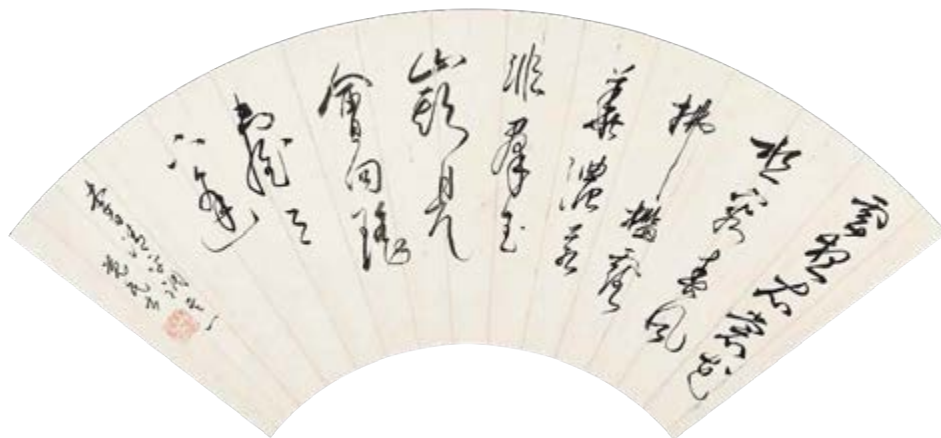 雲想衣裳花
想容春風
拂檻露
華濃若
非羣玉
山頭見
會向瑤
臺月
下逢
李白清平調之一